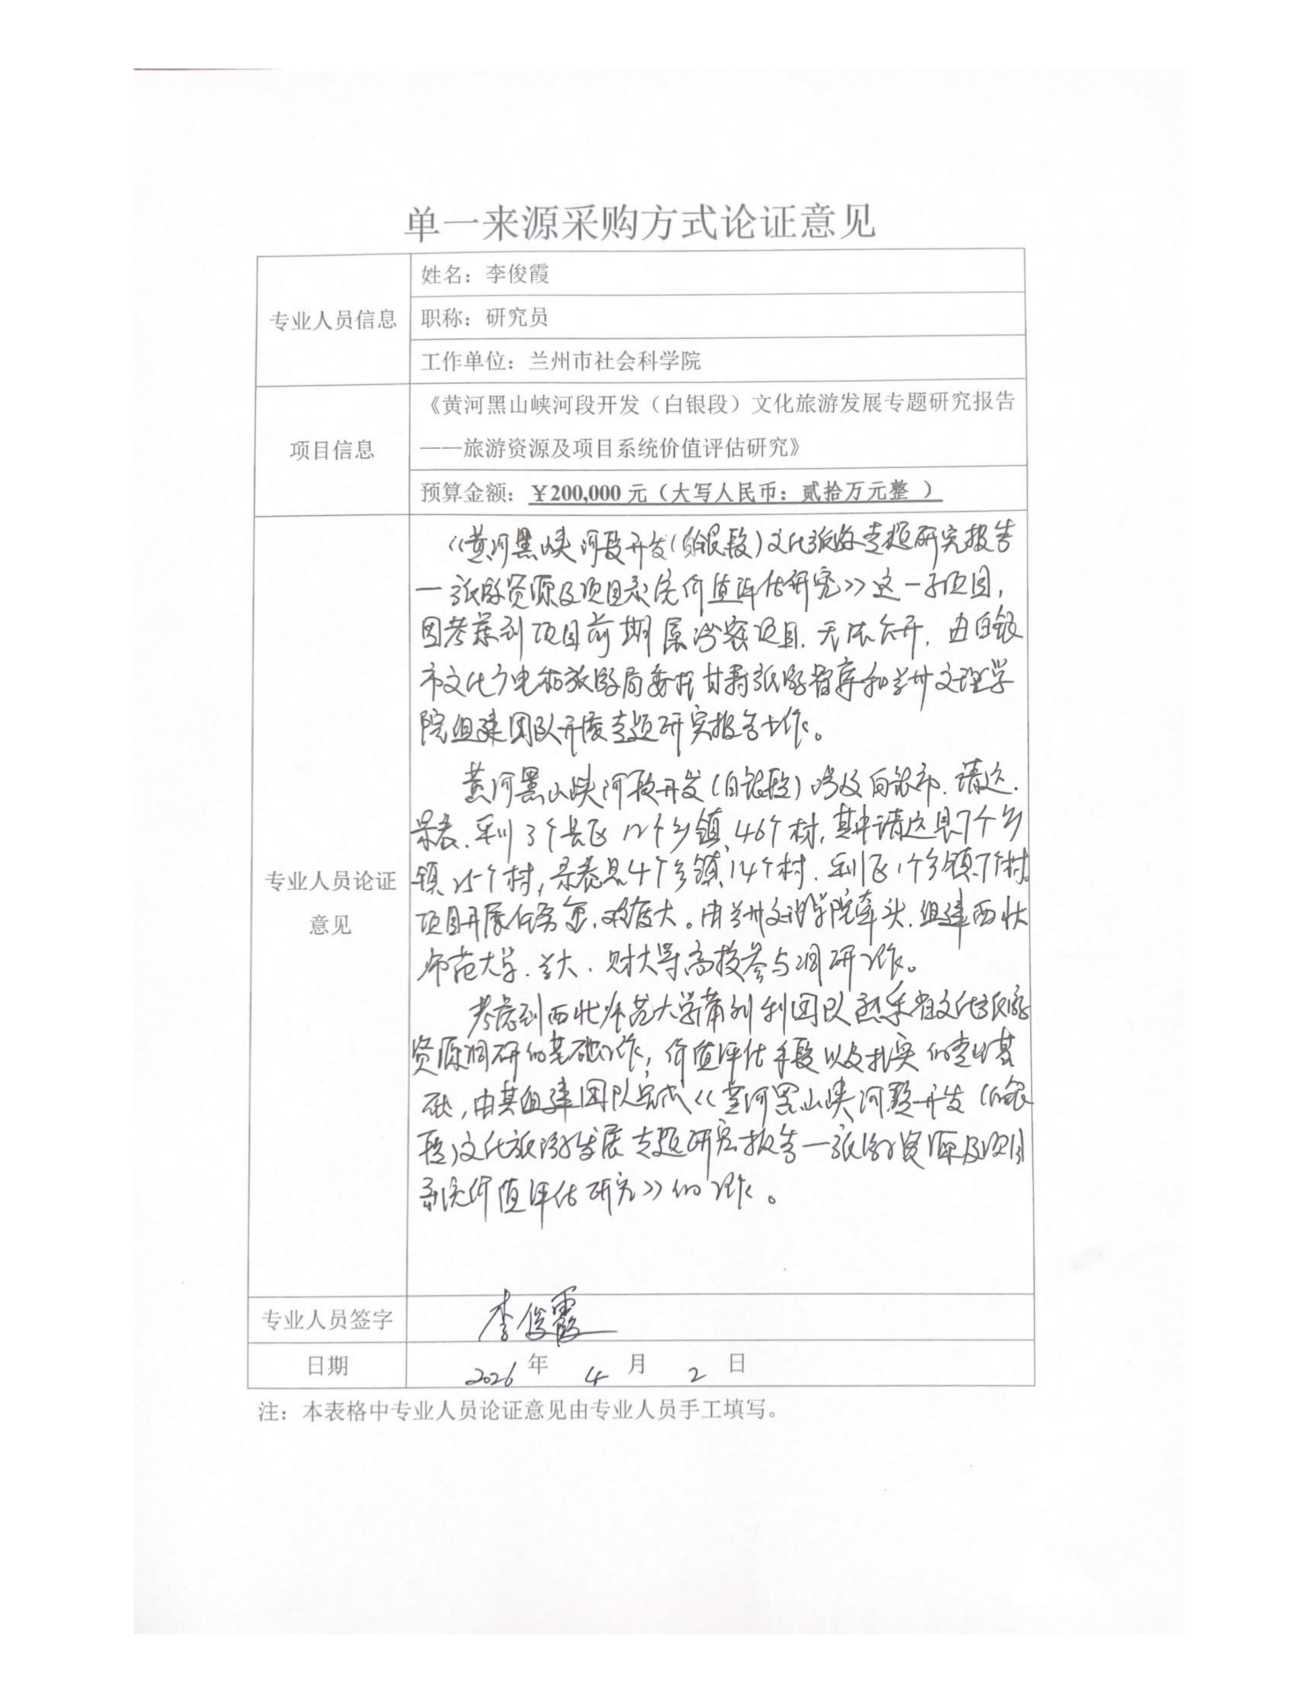 单一来源采购方式论证意见
专业人员信息
姓名：李俊霞
职称：研究员
工作单位：兰州市社会科学院
项目信息
《黄河黑山峡河段开发（白银段）文化旅游发展专题研究报告
——旅游资源及项目系统价值评估研究》
预算金额：￥200,000 元（大写人民币：贰拾万元整 ）
专业人员论证
意见
《黄河黑山峡河段开发(白银段)文化旅游专题研究报告
—旅游资源及项目系统价值评估研究》这一子项目,
因考虑到项目前期属涉密项目,无法公开,由白银
市文化广电和旅游局委托甘肃旅游智库和兰州文理学
院组建团队开展专题研究报告工作。
黄河黑山峡河段开发(白银段)涉及白银市、靖远、
景泰、平川3个县区12个乡镇、46个村,其中靖远县7个乡
镇25个村,景泰县4个乡镇、14个村,平川区1个乡镇、7个村。
项目开展任务重,难度大。由兰州文理学院牵头,组建西北
师范大学、兰大、财大等高校参与调研工作。
考虑到西北师范大学 团队熟悉省文化旅游
资源调研的基础工作,价值评估手段以及扎实的专业基
础,由其组建团队完成《黄河黑山峡河段开发(白银
段)文化旅游发展专题研究报告—旅游资源及项目
系统价值评估研究》的工作。
专业人员签字
李俊霞
日期
2026 年 4 月 2 日
注：本表格中专业人员论证意见由专业人员手工填写。